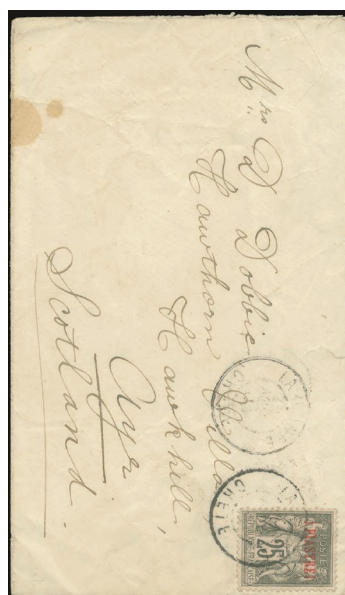 Mrs D Dobbie
Hawthorn Villa
Hawkhill,
Ayr
Scotland.
POSTES
25